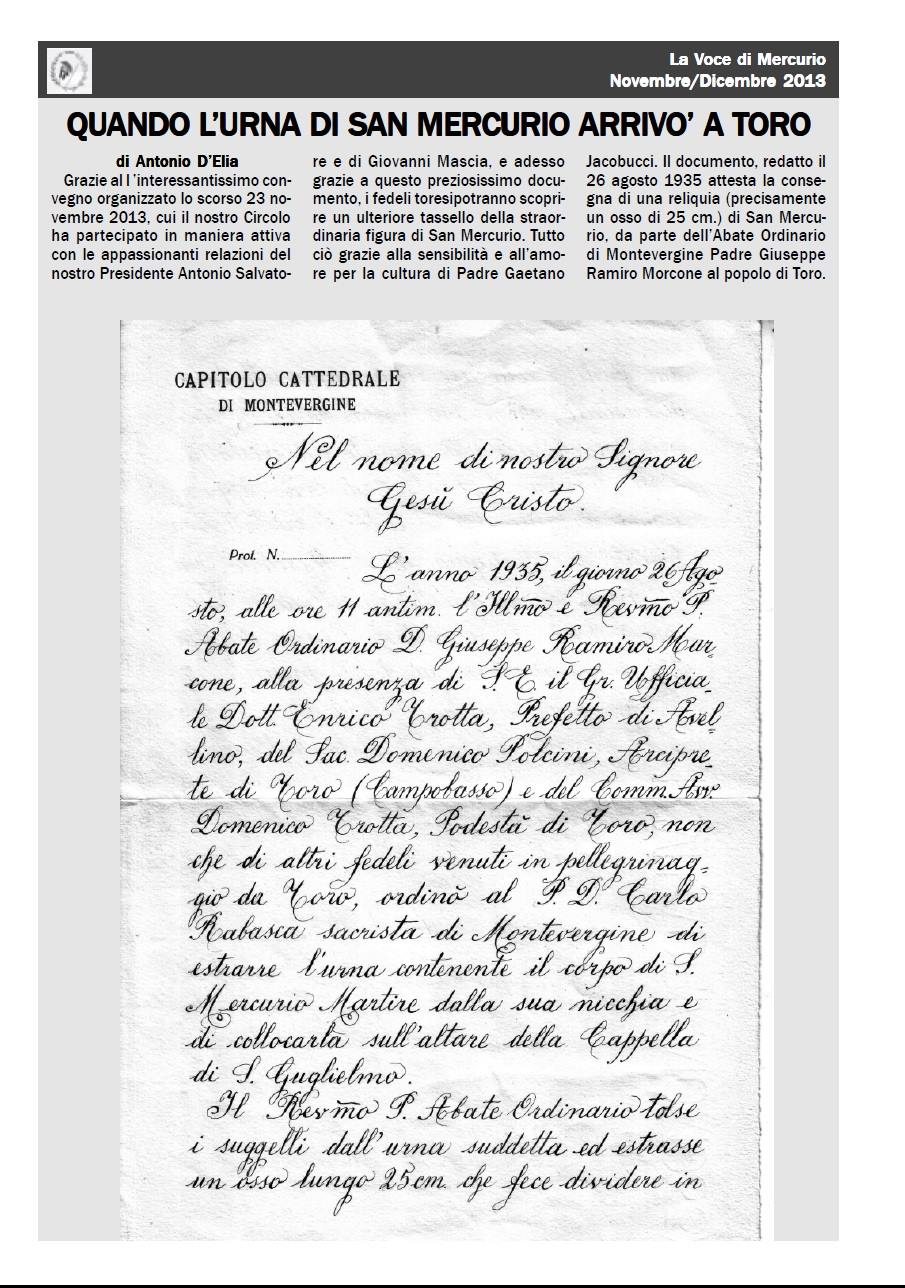 La Voce di Mercurio
Novembre/Dicembre 2013
QUANDO L'URNA DI SAN MERCURIO ARRIVO' A TORO
di Antonio D'Elia
Grazie al l'interessantissimo con-
vegno organizzato lo scorso 23 no-
vembre 2013, cui il nostro Circolo
ha partecipato in maniera attiva
con le appassionanti relazioni del
nostro Presidente Antonio Salvato-
re e di Giovanni Mascia, e adesso
grazie a questo preziosissimo docu-
mento, i fedeli toresipotranno scopri-
re un ulteriore tassello della straor-
dinaria figura di San Mercurio. Tutto
ciò grazie alla sensibilità e all'amo-
re per la cultura di Padre Gaetano
Jacobucci. Il documento, redatto il
26 agosto 1935 attesta la conse-
gna di una reliquia (precisamente
un osso di 25 cm.) di San Mercu-
rio, da parte dell'Abate Ordinario
di Montevergine Padre Giuseppe
Ramiro Morcone al popolo di Toro.
CAPITOLO CATTEDRALE
DI MONTEVERGINE
Nel nome di nostro Signore
Gesù Cristo.
Prot. N.
L'anno 1935, il giorno 26 Ago
sto, alle ore 11 antim. l'Illmo e Revmo P.
Abate Ordinario D. Giuseppe Ramiro Mar-
cone, alla presenza di S. E. il Gr. Ufficia-
le Dott. Enrico Trotta, Prefetto di Avel
lino, del Sac. Domenico Polcini, Arcipre-
te di Toro (Campobasso) e del Comm. Avv.
Domenico Trotta, Podestà di Toro, non
che di altri fedeli venuti in pellegrinag-
gio da Toro, ordinò al P. D. Carlo
Rabasca sacrista di Montevergine di
estrarre l'urna contenente il corpo di S.
Mercurio Martire dalla sua nicchia e
di collocarla sull'altare della Cappella
di S. Guglielmo.
Il Revmo P. Abate Ordinario tolse
i suggelli dall'urna suddetta ed estrasse
un osso lungo 25 cm. che fece dividere in